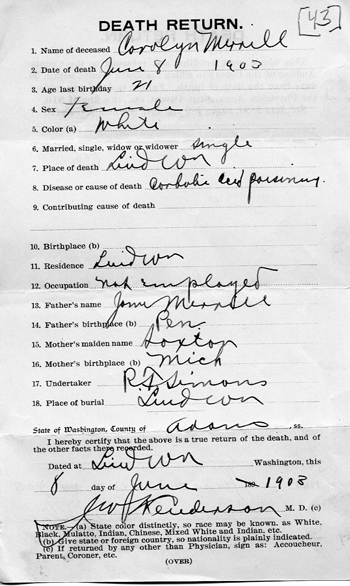 [43]
DEATH RETURN.
1. Name of deceased Carolyn Merrell
2. Date of death June 8 1903
3. Age last birthday 21
4. Sex Female
5. Color (a) White
6. Married, single, widow or widower single
7. Place of death Lind Wn
8. Disease or cause of death Carbolic acid poisoning.
9. Contributing cause of death
10. Birthplace (b)
11. Residence Lind Wn
12. Occupation not employed
13. Father's name Merrell
14. Father's birthplace (b) Pen.
15. Mother's maiden name
16. Mother's birthplace (b) Mich
17. Undertaker R F Simons
18. Place of burial Lind Wn
State of Washington, County of Adams, ss.
I hereby certify that the above is a true return of the death, and of
the other facts there recorded.
Dated at Lind Wn Washington, this
8 day of June 1903
Henderson M. D. (c)
NOTE.—(a) State color distinctly, so race may be known, as White,
Black, Mulatto, Indian, Chinese, Mixed White and Indian, etc.
(b) Give state or foreign country, so nationality is plainly indicated.
(c) If returned by any other than Physician, sign as: Accoucheur,
Parent, Coroner, etc.
(OVER)